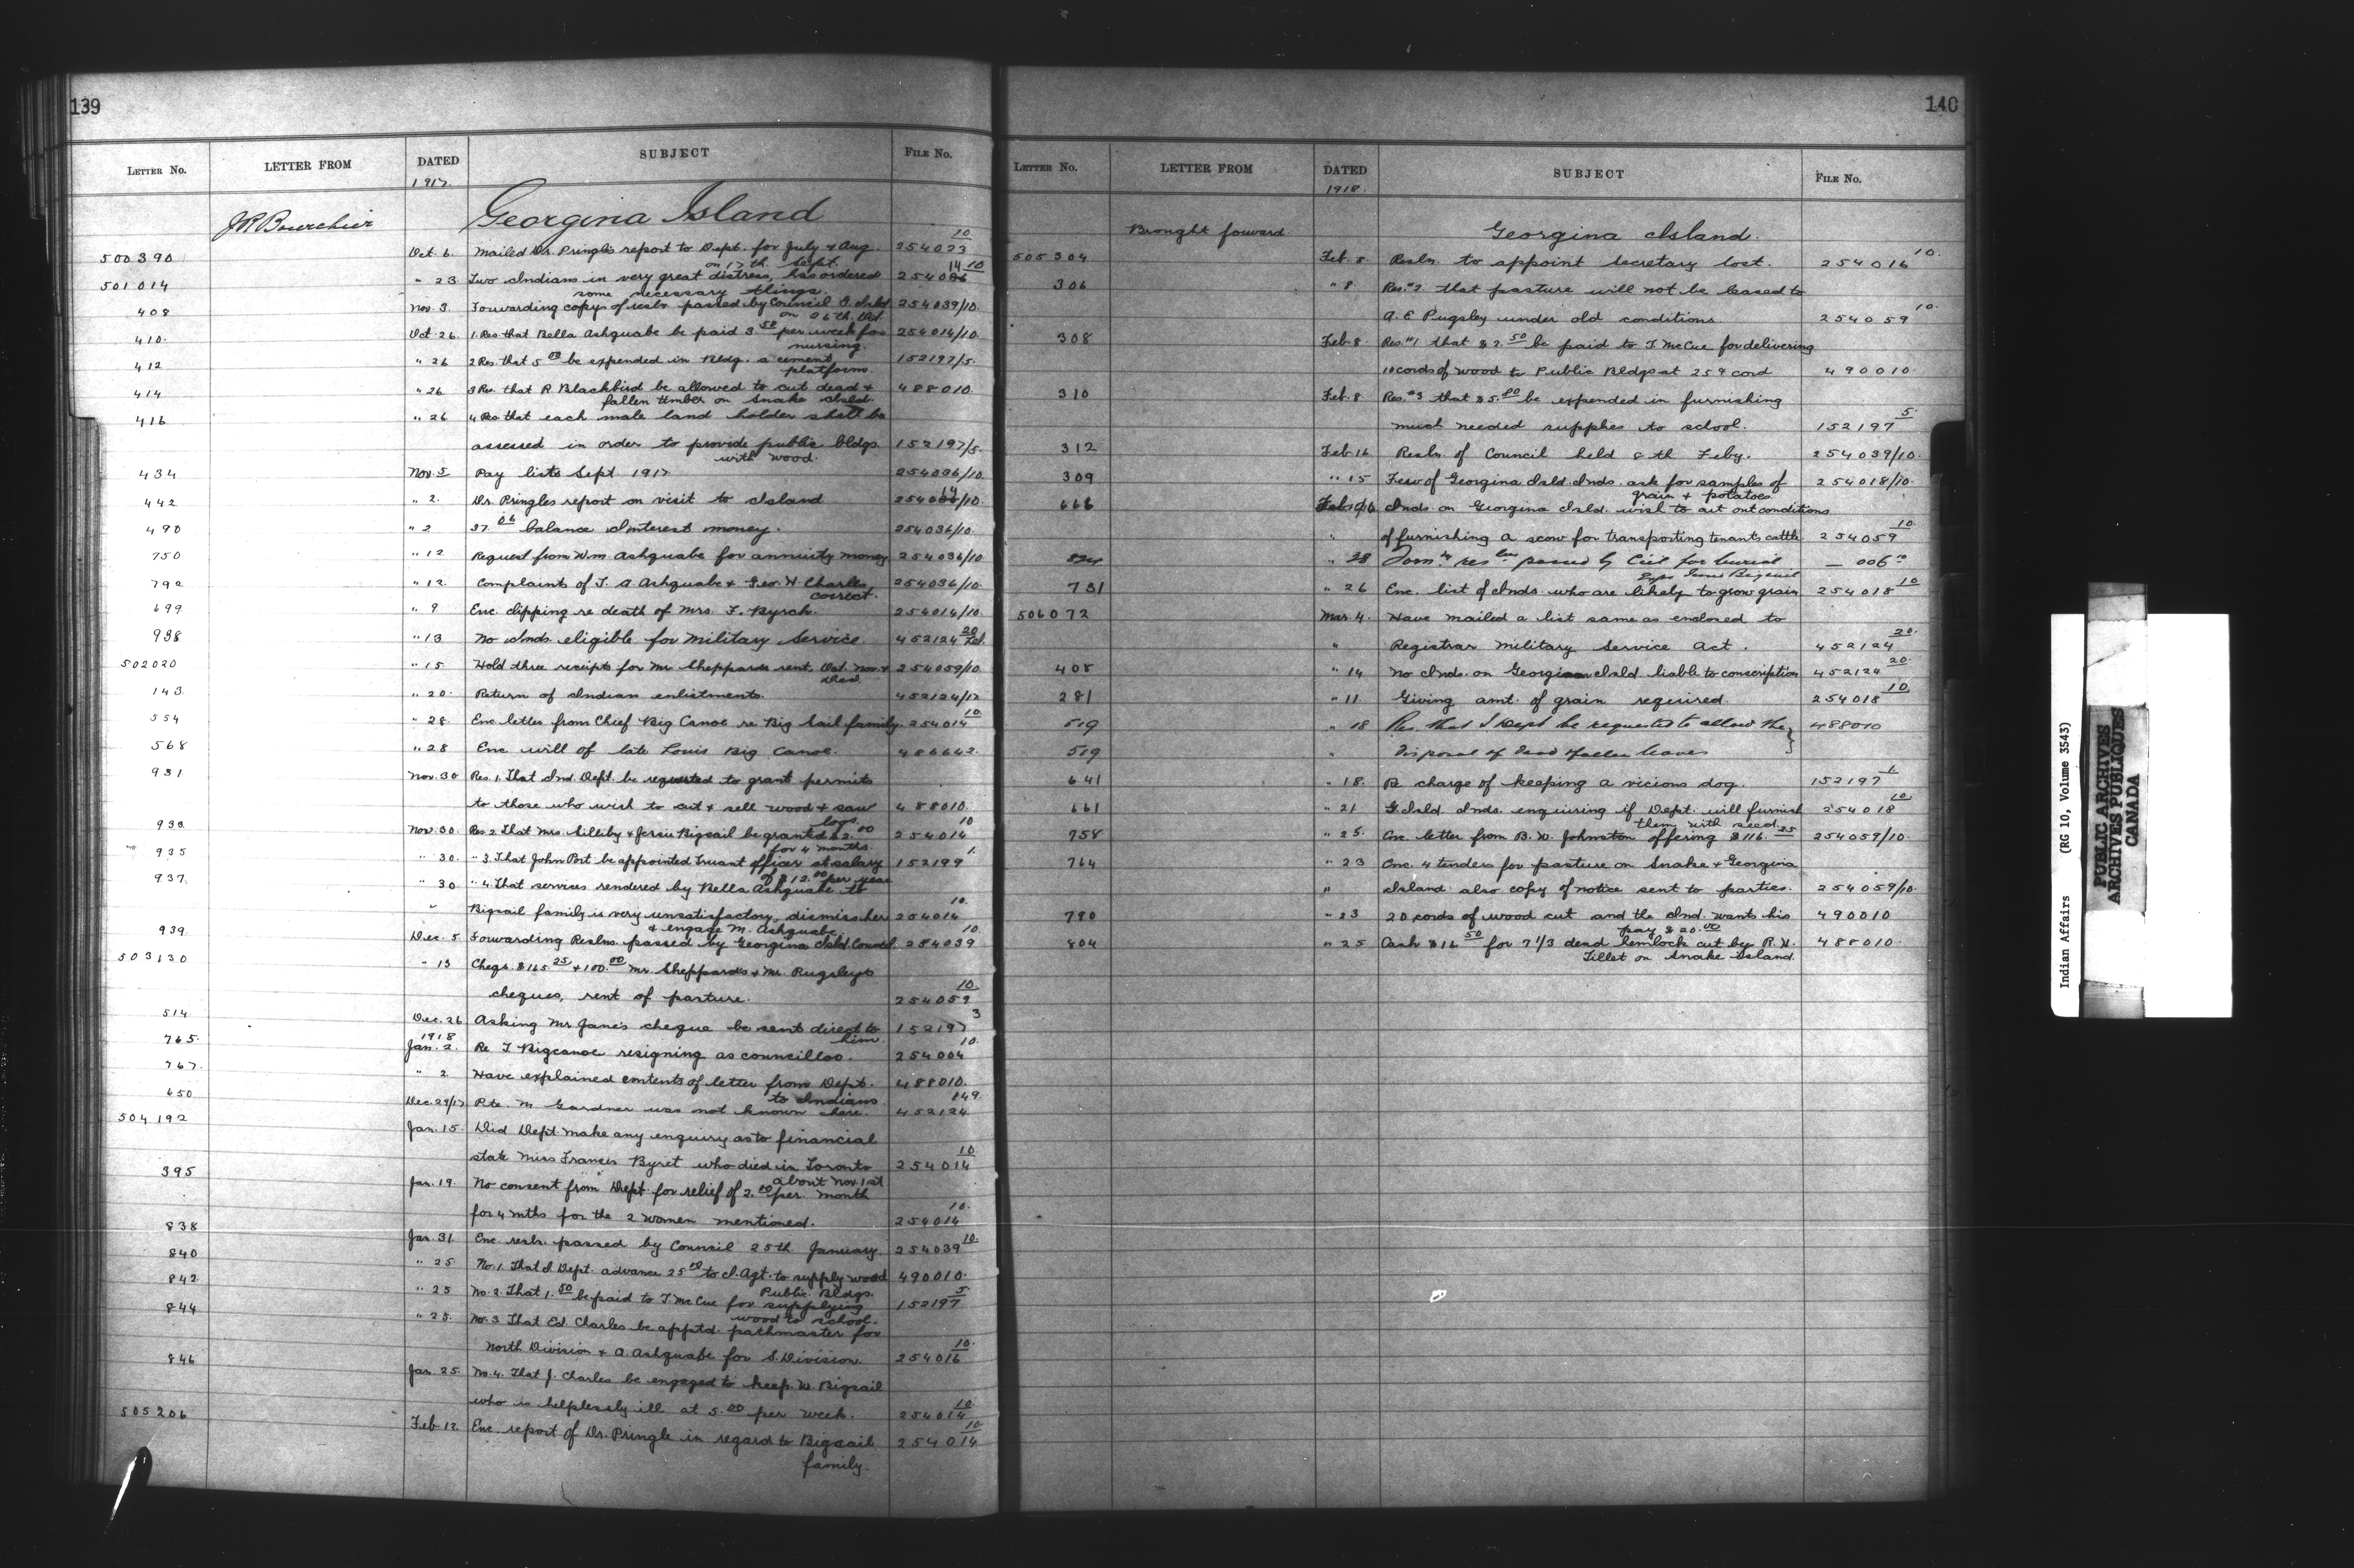 139
LETTER NO. LETTER FROM DATED SUBJECT FILE NO.
1917.
J R Bourchier Georgina Island
500390 Oct. 6. Mailed Dr. Pringle's report to Dept. for July & Aug. 254023 10
on 17th Sept.
501014 " 23 Two Indians in very great distress, has ordered 254086 14 10
some necessary things.
408 Nov. 3. Forwarding copy of resln. passed by Council G. Isld. 254039/10.
on 26th Oct.
410. Oct. 26. 1. Res. that Bella Ashquabe be paid 3 50 per week for 254014/10.
nursing.
412 " 26 2 Res. that 5 00 be expended in Bldg. a cement 152197/5.
platform.
414 " 26 3 Res. that R Blackbird be allowed to cut dead & 488010.
fallen timber on Snake Isld.
416 " 26 4 Res. that each male land holder shall be
assessed in order to provide public bldgs. 152197/5.
with wood.
434 Nov. 5 Pay lists Sept. 1917 254036/10.
442 " 2. Dr. Pringles report on visit to Island 254014/10.
490 " 2 37 06 balance Interest money. 254036/10.
750 " 12 Request from Wm. Ashquabe for annuity money 254036/10
792 " 12. Complaint of T. A Ashquabe & Geo. H. Charles, 254036/10.
correct.
699 " 9 Enc. clipping re death of Mrs. F. Byrch. 254014/10.
938 " 13 No Inds. eligible for Military Service 452124 20
502020 " 15 Hold three receipts for Mr. Sheppards rent, Oct. Nov. & 254059/10
Dec.
143. " 20. Return of Indian enlistments. 452124/12
554 " 28. Enc. letter from Chief Big Canoe re Big Sail family. 254014 10
568 " 28 Enc. will of late Louis Big Canoe. 486642.
931 Nov. 30 Res. 1. That Ind. Dept. be requested to grant permits
to those who wish to cut & sell wood & saw 488010.
logs.
933. Nov. 30. Res. 2. That Mrs. Silliby & Jessie Bigsail be granted $2. 00 254014 10
for 4 months.
935 " 30. " 3. That John Port be appointed Truant officer at salary 152199 1.
of $12. 00 per year
937. " 30 " 4. That services rendered by Bella Ashquabe to
" Bigsail family is very unsatisfactory, dismiss her 254014 10.
& engage M. Ashquabe.
939 Dec. 5 Forwarding Reslns. passed by Georgina Isld. Council. 254039 10.
503130 " 13 Cheqs. $165 25 & 100. 00 Mr. Sheppards & Mr. Pugsleys
cheques, rent of pasture. 254059 10
514 Dec. 26 Asking Mr Jane's cheque be sent direct to 152197 3
him.
1918
765. Jan. 2. Re T Bigcanoe resigning as councillor. 254004 10.
767. " 2 Have explained contents of letter from Dept. 488010.
to Indians.
650 Dec. 29/17 Pte. M Gardner was not known here. 452124 149.
504192 Jan. 15. Did Dept make any enquiry as to financial
state Miss Frances Byret who died in Toronto 254014 10
about Nov. 1st
395 Jan. 19. No consent from Dept. for relief of 2. 00 per. month
for 4 mths for the 2 women mentioned. 254014 10.
838 Jan. 31. Enc. resln. passed by Council 25th January. 254039 10.
840 " 25 No. 1. That I. Dept. advance 25 00 to I. Agt. to supply wood 490010.
Public Bldgs.
842 " 25 No. 2. That 1. 50 be paid to T. McCue for supplying 152197 5
wood to school.
844 " 25. No. 3 That Ed. Charles be apptd. pathmaster for
North Division & A. Ashquabe for S. Division. 254016 10.
846 Jan. 25. No. 4. That J. Charles be engaged to keep W. Bigsail
who is helplessly ill at 5. 00 per week. 254014 10.
505206 Feb. 12. Enc. report of Dr. Pringle in regard to Bigsail 254014 10.
family.
140
LETTER NO. LETTER FROM DATED SUBJECT FILE NO.
1918.
Brought forward. Georgina Island.
505304 Feb. 8. Resln. to appoint Secretary lost. 254016 10.
306 " 8. Res. #2 that pasture will not be leased to
A. E Pugsley under old conditions 254059 10.
308 Feb. 8. Res. #1 that $2. 50 be paid to T. McCue for delivering
10 cords of wood to Public Bldgs at 25¢ cord 490010.
310 Feb. 8 Res. #3 that $5. 00 be expended in furnishing
much needed supplies to school. 152197 5.
312 Feb. 16 Resln. of Council held 8th Feby. 254039/10.
309 " 15 Few of Georgina Isld. Inds. ask for samples of 254018/10.
grain & potatoes.
668 Feb. Inds. on Georgina Isld. wish to art out conditions
" of furnishing a scow for transporting tenants cattle 254059 10
" 28 passed by Ccil for burial — 006 10
731 " 26 Enc. list of Inds. who are likely to grow grain 254018 10
506072 Mar. 4. Have mailed a list same as enclosed to
" Registrar Military Service Act. 452124 20.
408 " 14 No Inds. on Georgina Isld. liable to conscription 452124 20.
281 " 11. Giving amt. of grain required. 254018 10.
519 " 18 Res. that I Dept be requested to allow the 488010
519 " Disposal of dead & fallen leaves
641 " 18. Re charge of keeping a vicious dog. 152197 1
661 " 21 G. Isld. Inds. enquiring if Dept. will furnish 254018 10.
them with seed.
758 " 25. Enc. letter from B. W. Johnston offering $116. 25 254059/10.
764 " 23 Enc. 4 tenders for pasture on Snake & Georgina
" Island also copy of notice sent to parties. 254059/10.
790 " 23 20 cords of wood cut and the Ind. wants his 490010
pay $20. 00
804 " 25 Cash $16 50 for 7 1/3 dead hemlock cut by R. H. 488010.
Tillet on Snake Island.
Indian Affairs (RG 10, Volume 3543)
PUBLIC ARCHIVES
ARCHIVES PUBLIQUES
CANADA